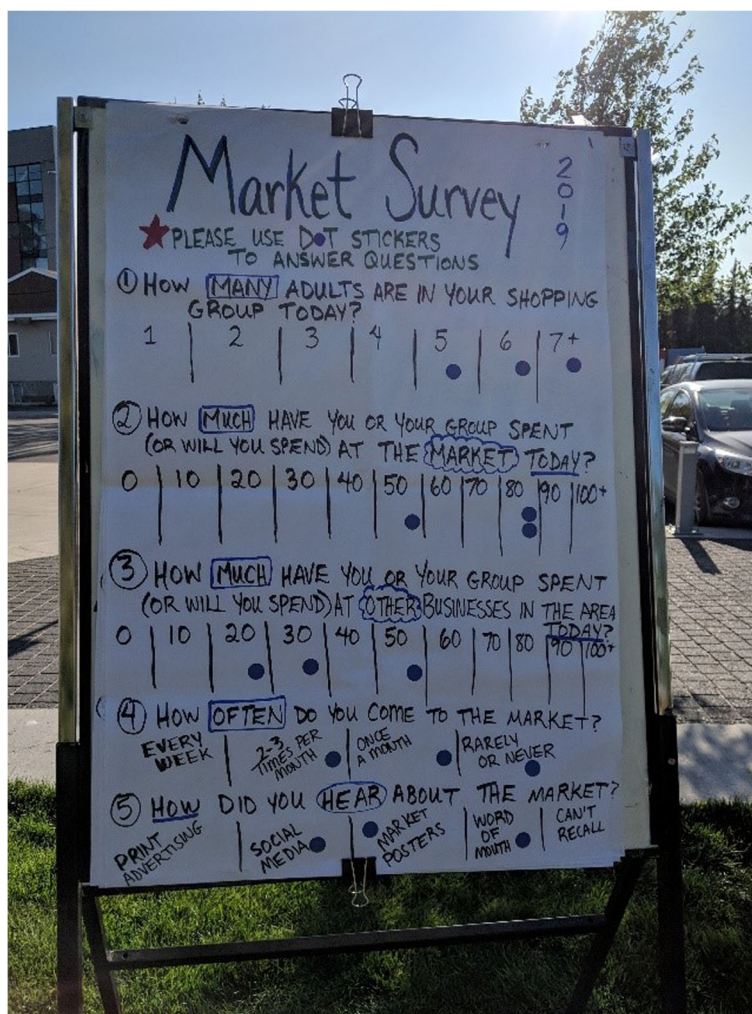 Market Survey 2019
PLEASE USE DOT STICKERS
TO ANSWER QUESTIONS
① HOW MANY ADULTS ARE IN YOUR SHOPPING
GROUP TODAY?
1 2 3 4 5 6 7+
② HOW MUCH HAVE YOU OR YOUR GROUP SPENT
(OR WILL YOU SPEND) AT THE MARKET TODAY?
0 10 20 30 40 50 60 70 80 90 100+
③ HOW MUCH HAVE YOU OR YOUR GROUP SPENT
(OR WILL YOU SPEND) AT OTHER BUSINESSES IN THE AREA
TODAY?
0 10 20 30 40 50 60 70 80 90 100+
④ HOW OFTEN DO YOU COME TO THE MARKET?
EVERY
WEEK
2-3
TIMES PER
MONTH
ONCE
A MONTH
RARELY
OR NEVER
⑤ HOW DID YOU HEAR ABOUT THE MARKET?
PRINT
ADVERTISING
SOCIAL
MEDIA
MARKET
POSTERS
WORD
OF
MOUTH
CAN'T
RECALL